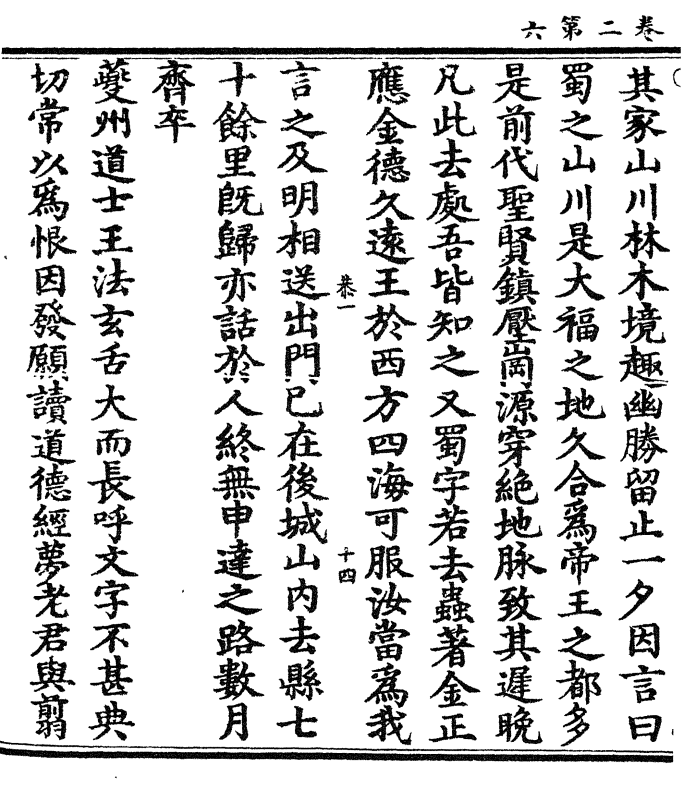 卷二第六
其家山川林木境趣幽勝留止一夕因言曰
蜀之山川是大福之地久合爲帝王之都多
是前代聖賢鎮壓崗源穿絶地脉致其遲晚
凡此去處吾皆知之又蜀字若去蟲著金正
應金德久遠王於西方四海可服汝當爲我
恭一
十四
言之及明相送出門已在後城山内去縣七
十餘里旣歸亦話於人終無申達之路數月
齊卒
夔州道士王法玄舌大而長呼文字不甚典
切常以爲恨因發願讀道德經夢老君與翦